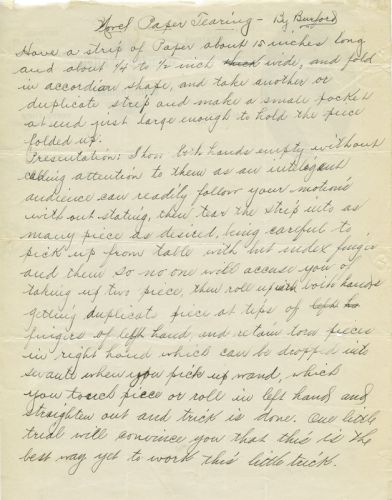 Novel Paper Tearing - By Burford
Have a strip of Paper about 15 inches long
and about 1/4 to 1/2 inch thick wide, and fold
in accordian shape, and take another or
duplicate strip and make a small pocket
at end just large enough to hold the piece
folded up.
Presentation: Show both hands empty without
calling attention to them as an intelegent
audience can readily follow your motions
with out stating, then tear the strip into as
many piece as desired, being careful to
pick up from table with but index finger
and them so no one will accuse you of
taking up two piece, then roll up with both hands
getting duplicate piece at tips of left ha
fingers of left hand, and retain torn pieces
in right hand which can be dropped into
servante when you pick up wand, which
you touch piece or roll in left hand and
straighten out and trick is done. One little
trial will convince you that this is the
best way yet to work this little trick.